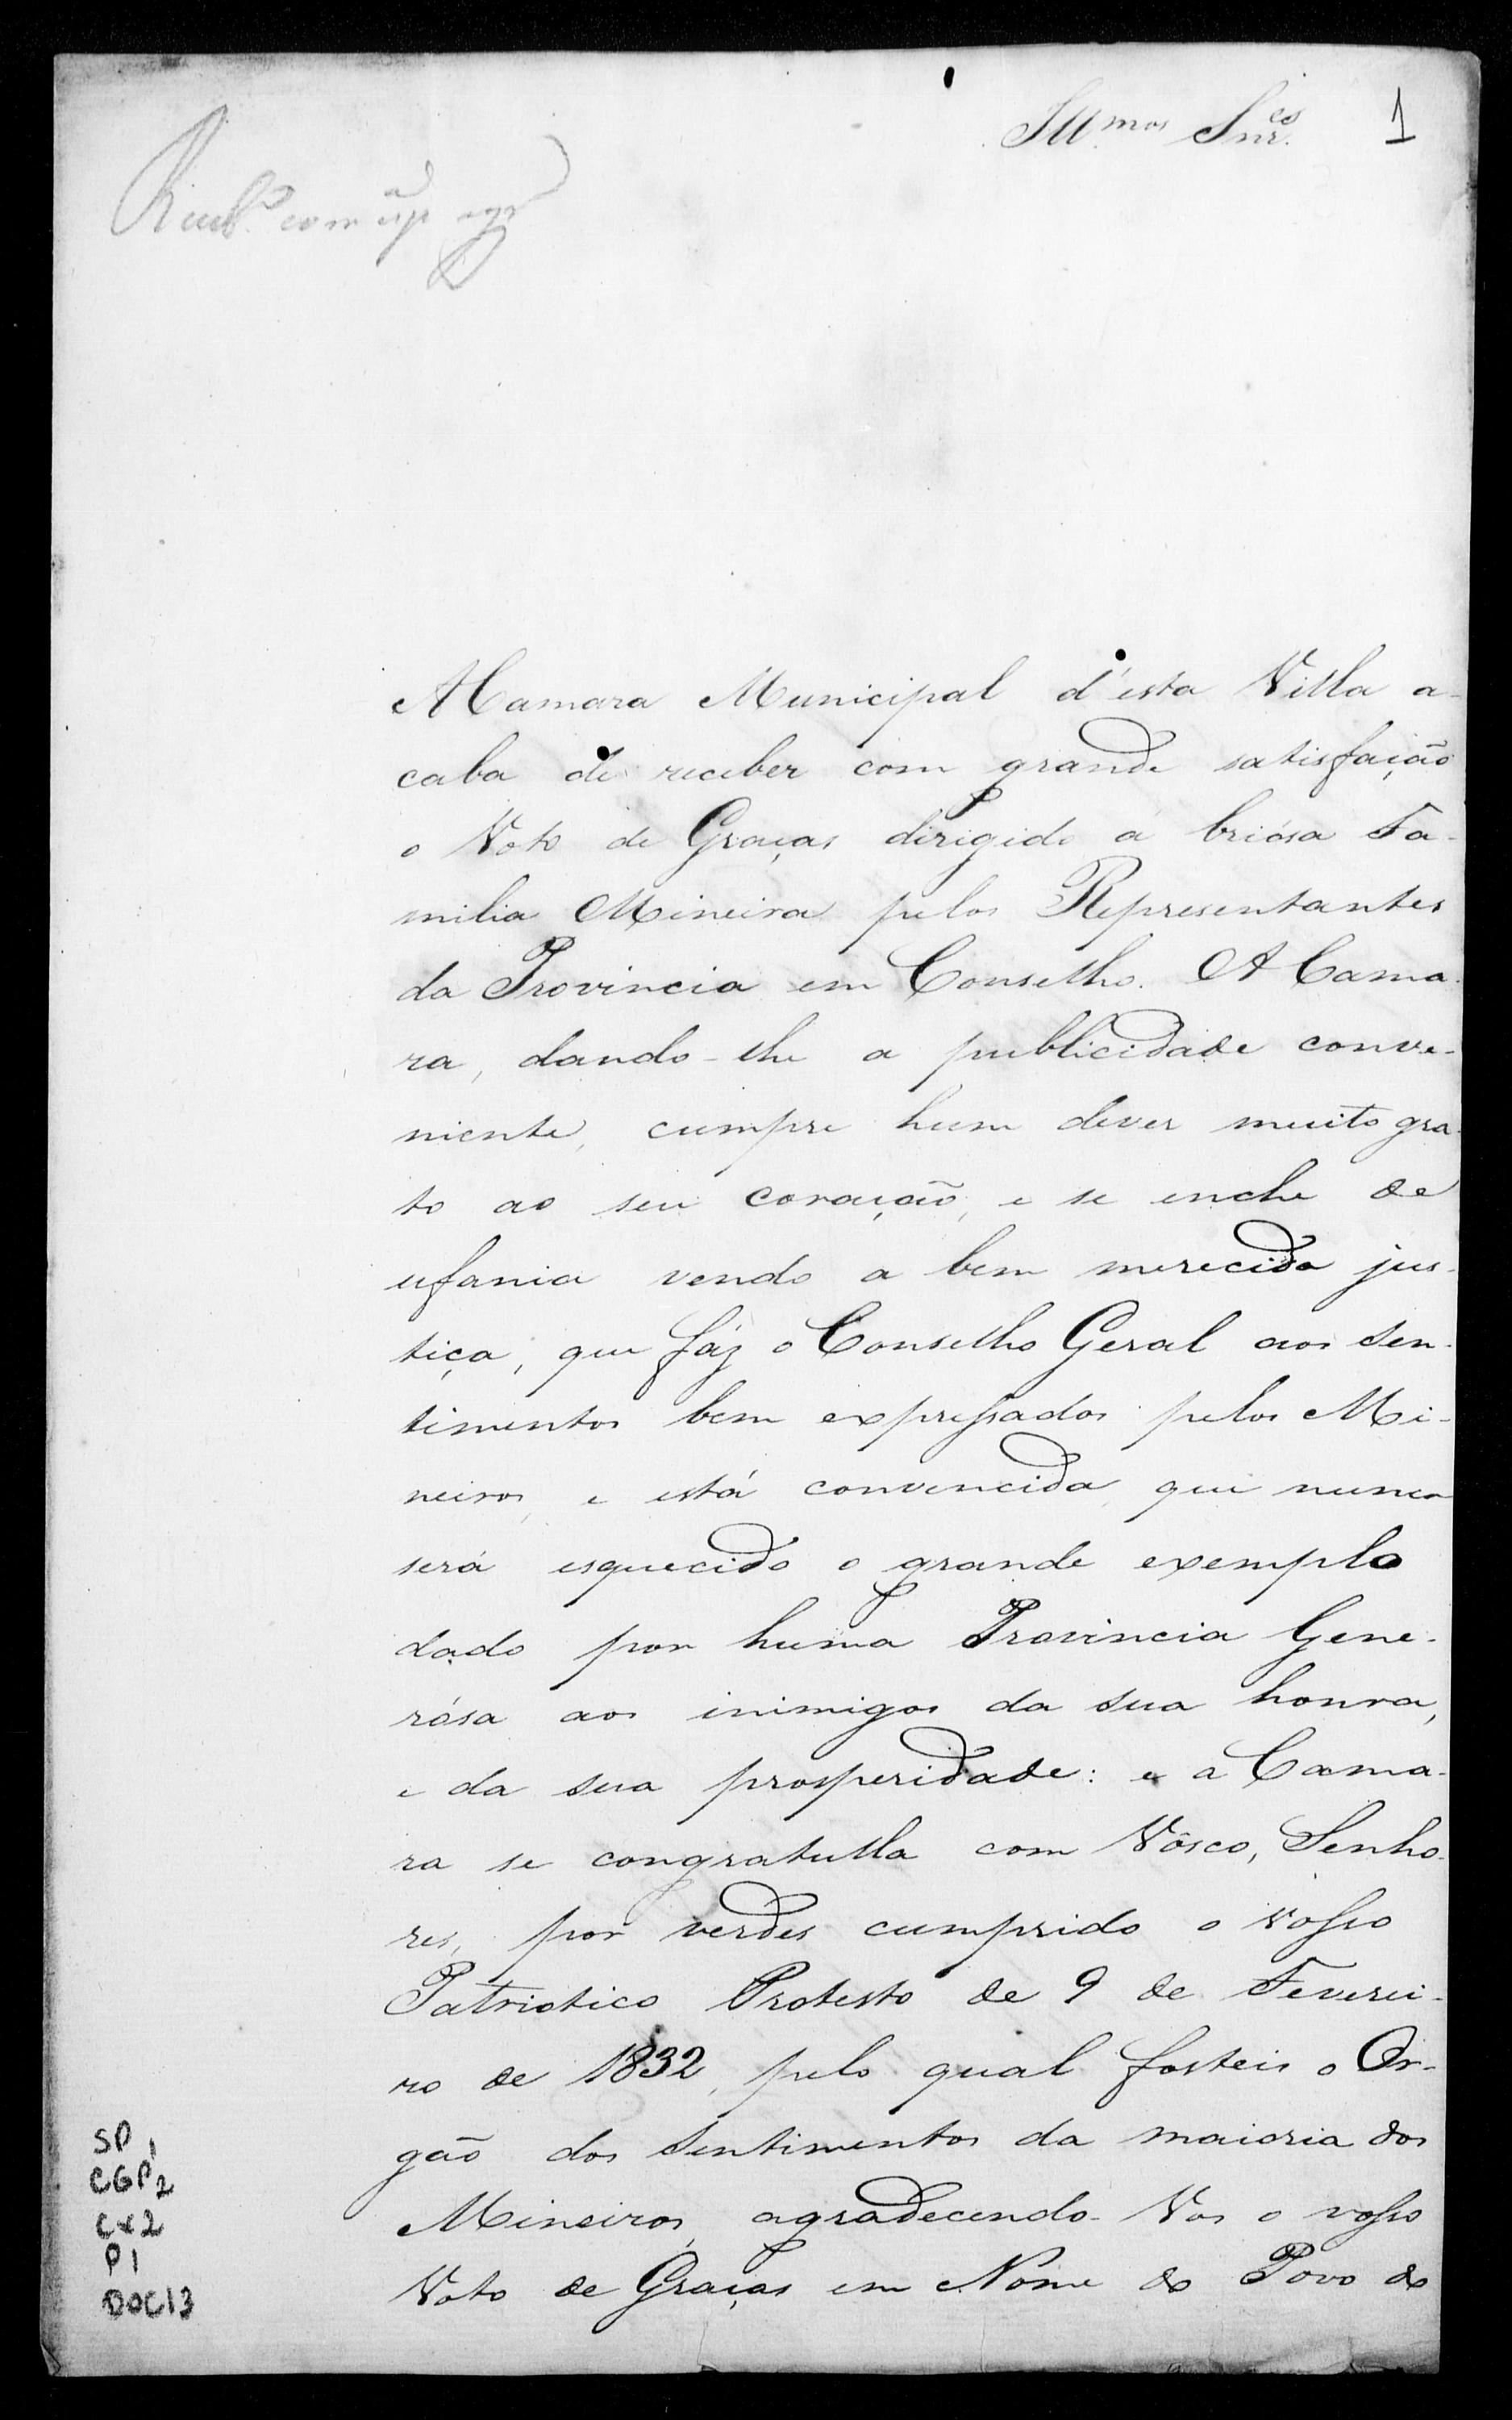 Ill.mos Snr.es 1
com
A Camara Municipal d'esta Villa a-
caba de receber com grande satisfação
o Voto de Graças dirigido á briósa Fa-
milia Mineira pelos Representantes
da Provincia em Conselho. A Cama-
ra, dando-lhe a publicidade conve-
niente, cumpre hum dever muito gra-
to ao seu coração, e se enche de
ufania vendo a bem merecida jus-
tiça, que fáz o Conselho Geral aos sen-
timentos bem expressados pelos Mi-
neiros, e está convencida, que nunca
será esquecido o grande exemplo
dado por huma Provincia Gene-
rósa aos inimigos da sua honra,
e da sua prosperidade: e a Cama-
ra se congratulla com Vôsco, Senho-
res, por verdes cumprido o vosso
Patriotico Protesto de 9 de Feverei-
ro de 1832, pelo qual fosteis o Or-
gão dos Sentimentos da maioria dos
Mineiros, agradecendo-Vos o vosso
Voto de Graças em Nome do Povo do
SP 1
CGP 2
CX2
P1
DOC13